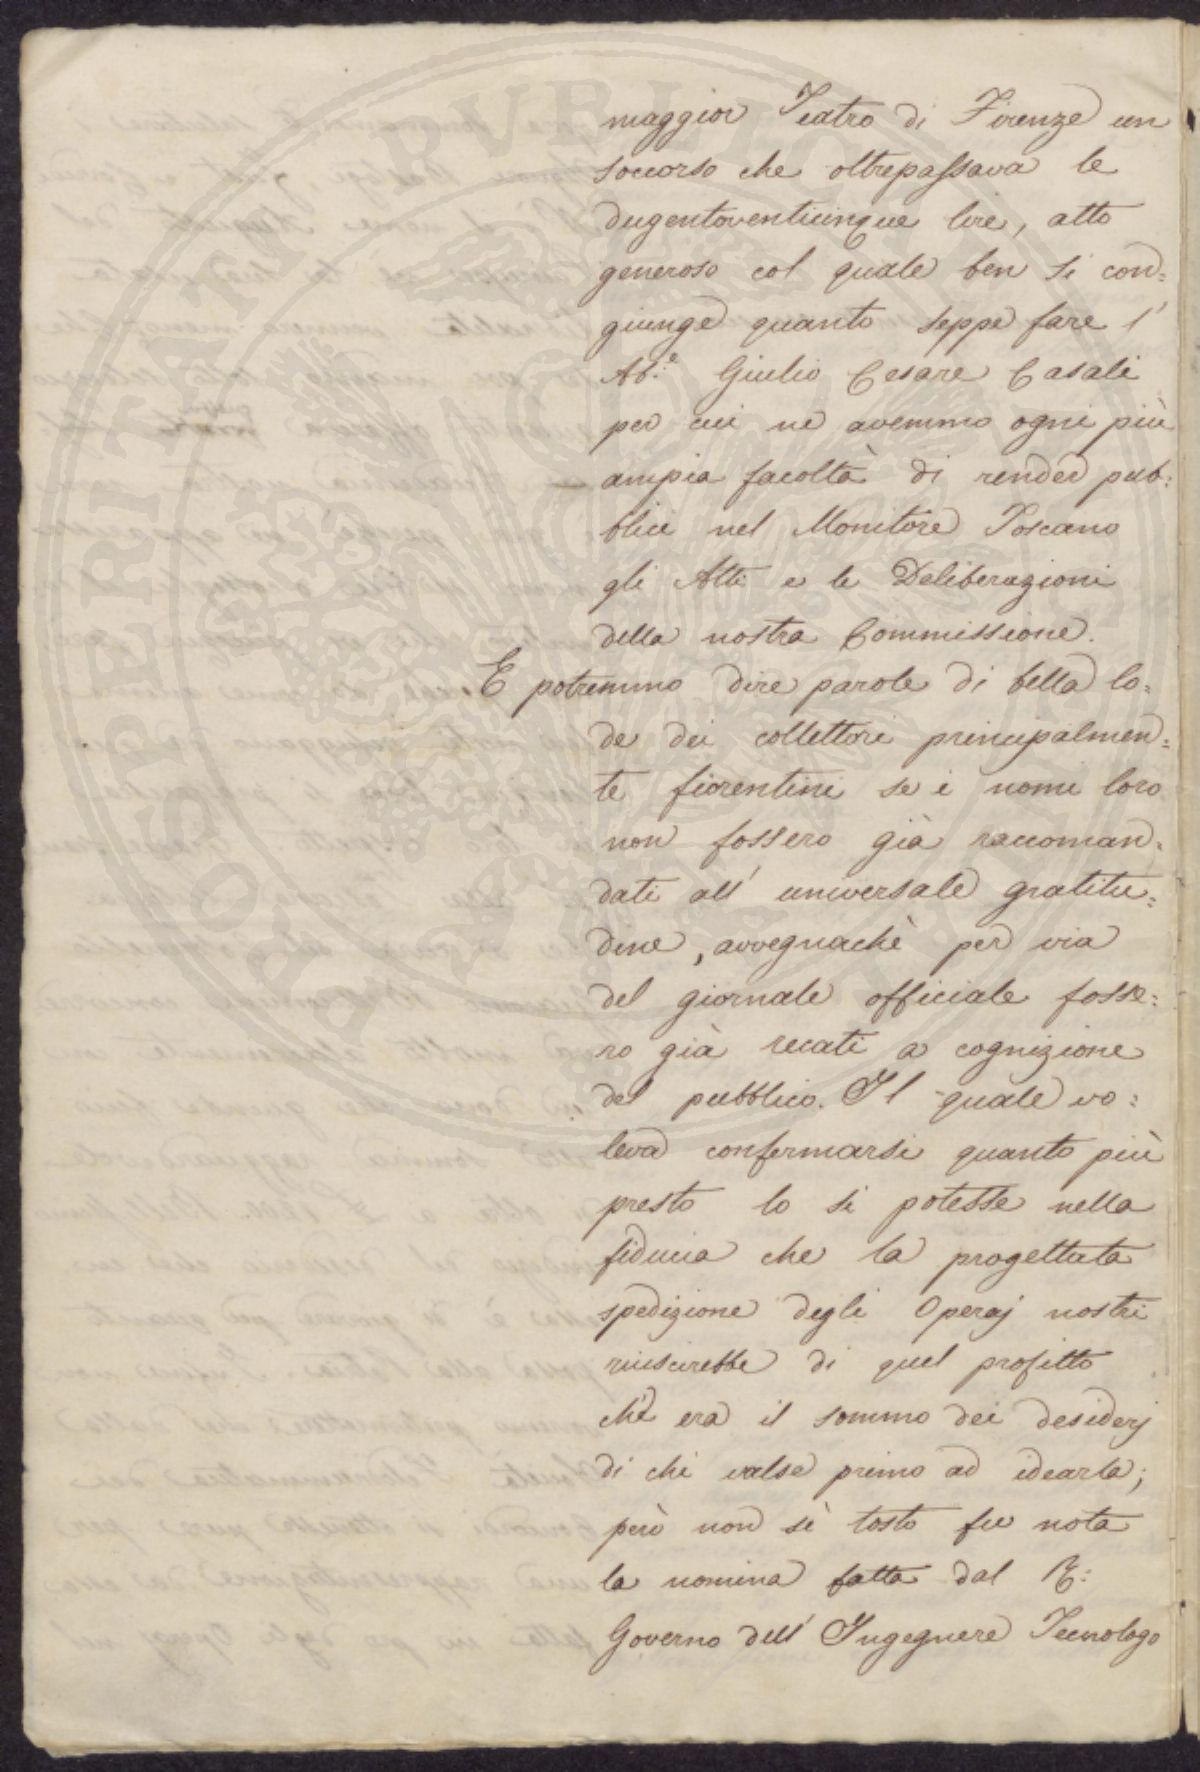 maggior Teatro di Firenze un
soccorso che oltrepassava le
dugentoventicinque lire, atto
generoso col quale ben si con=
giunge quanto seppe fare l'
Ab.e Giulio Cesare Casali
per cui ne avemmo ogni più
ampia facoltà di render pub=
blici nel Monitore Toscano
gli Atti e le Deliberazioni
della nostra Commissione.
E potremmo dire parole di bella lo=
de dei collettori principalmen=
te fiorentini se i nomi loro
non fossero già raccoman=
dati all' universale gratitu=
dine, avvegnachè per via
del giornale officiale fosse=
ro già recati a cognizione
del pubblico. Il quale vo=
leva confermarsi quanto più
presto lo si potesse nella
fiducia che la progettata
spedizione degli Operaj nostri
riuscirebbe di quel profitto
ch'e era il sommo dei desiderj
di chi valse primo ad idearla;
però non sì tosto fu nota
la nomina fatta dal R:
Governo dell' Ingegnere Tecnologo
PROSPERITATI PVBLICAE